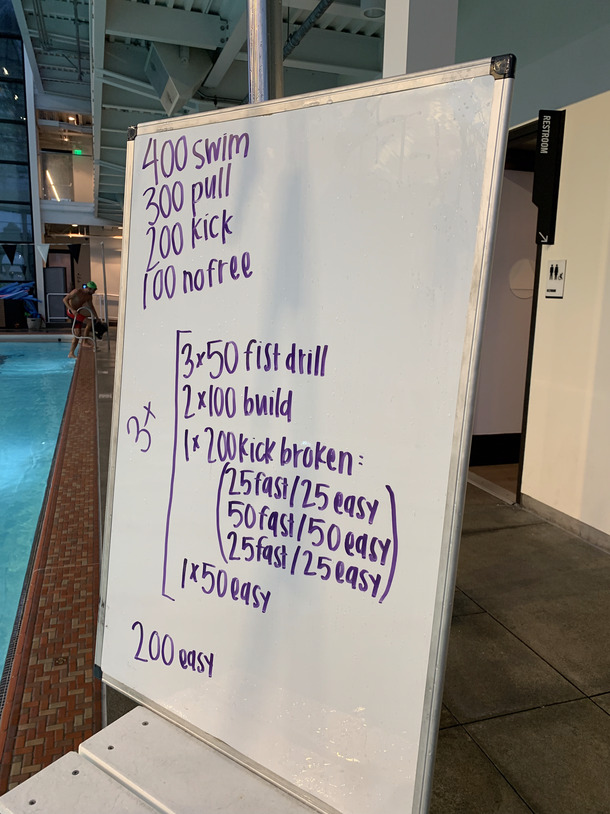 400 swim
300 pull
200 kick
100 no free
3x
3x50 fist drill
2x100 build
1x200 kick broken:
(25 fast/25 easy
50 fast/50 easy
25 fast/25 easy)
1x50 easy
200 easy
RESTROOM